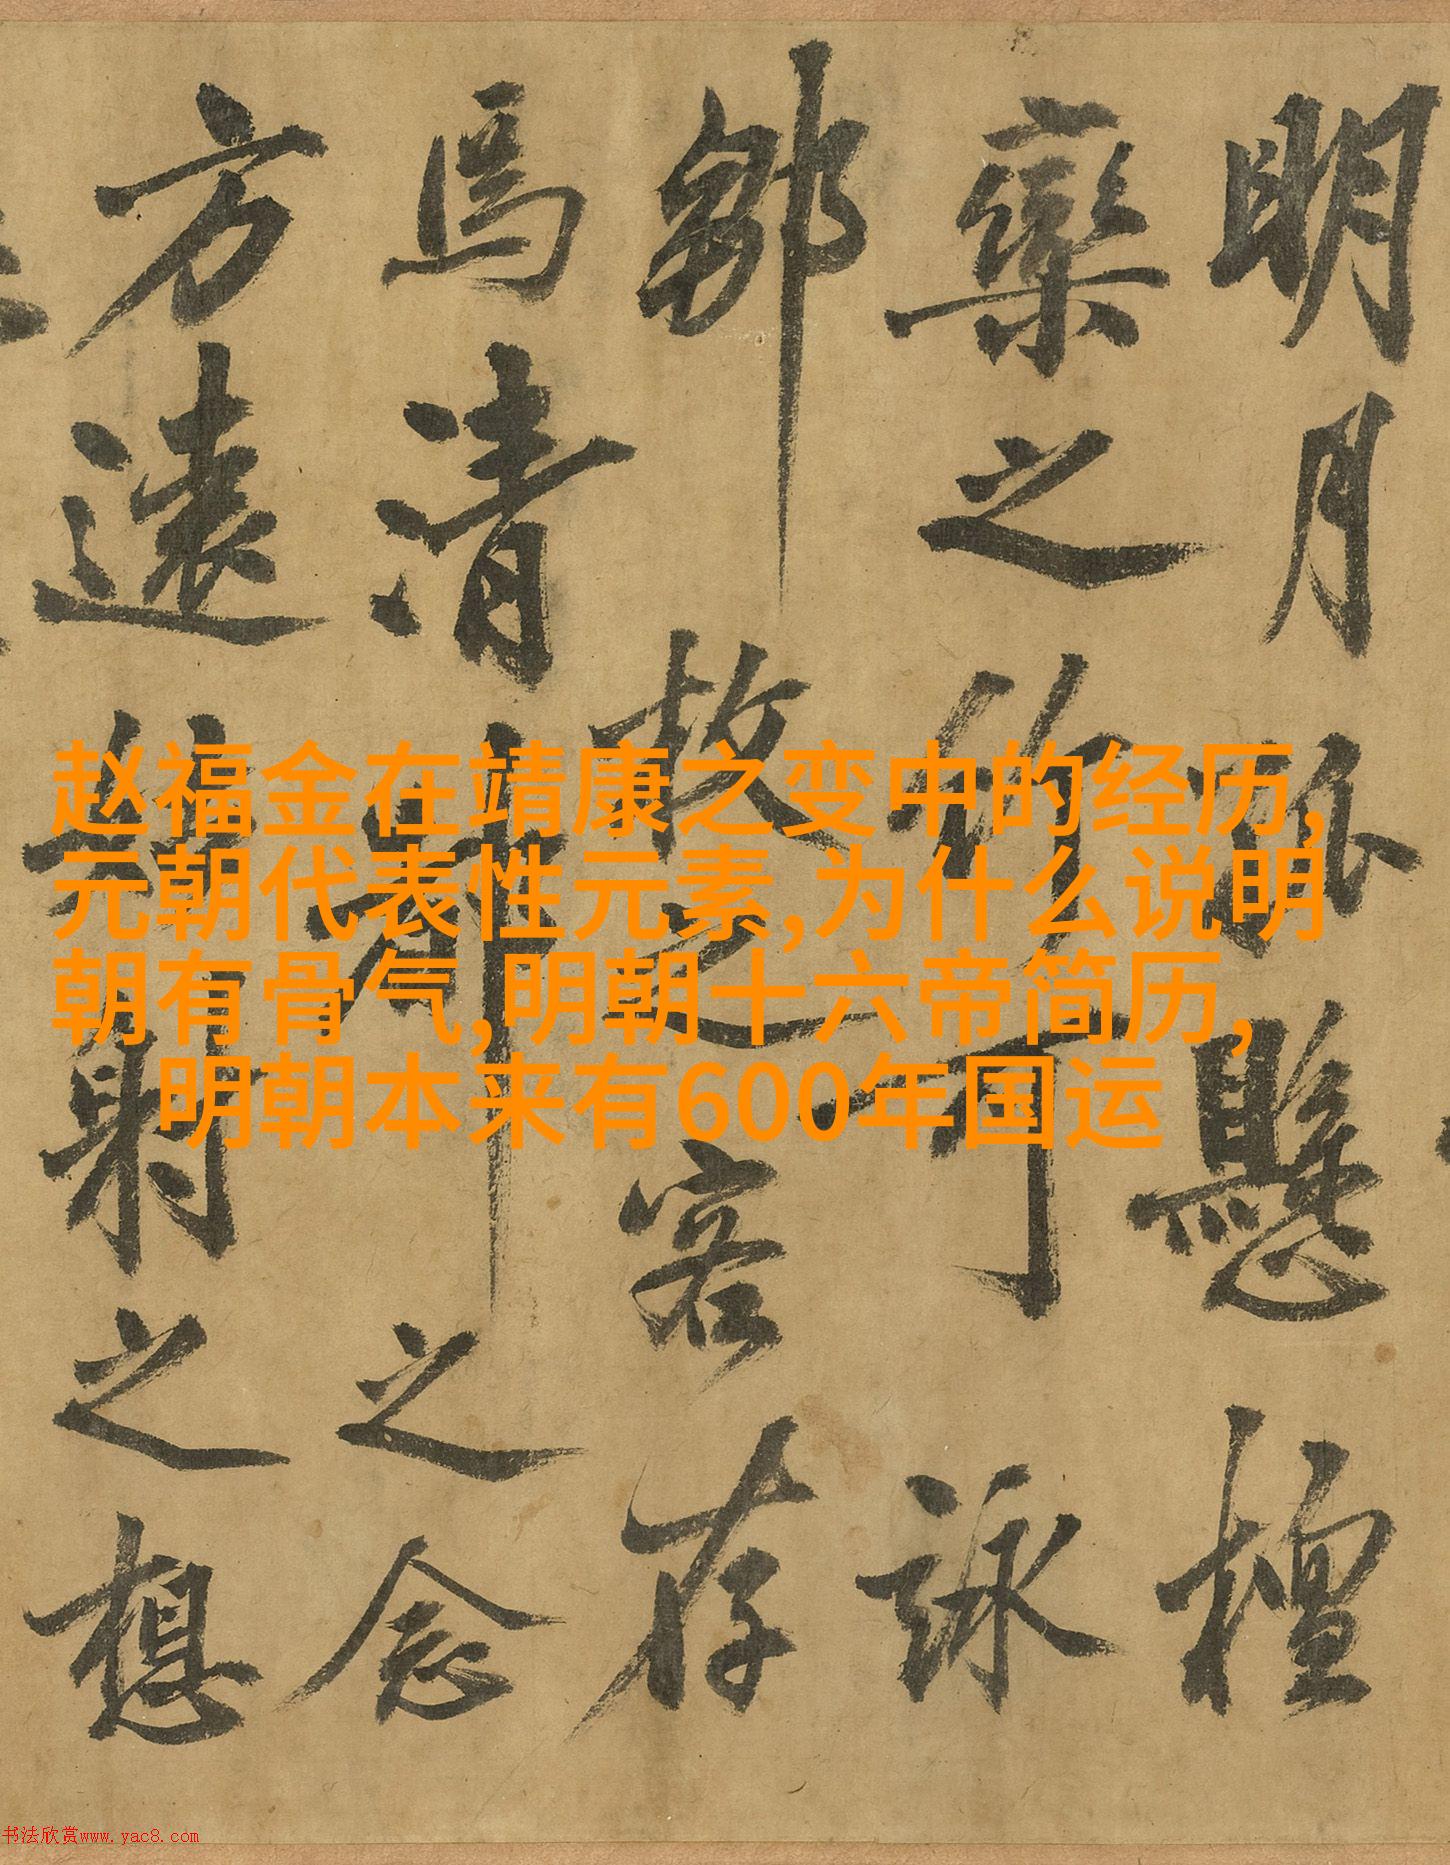 明月孤懸檀
欒之竹可詠
鄒枚之客存
焉清之念
方遠射之想
赵福金在靖康之变中的经历,
元朝代表性元素,为什么说明
朝有骨气,明朝十六帝简历,
明朝本来有600年国运
书法欣赏www.yac8.com